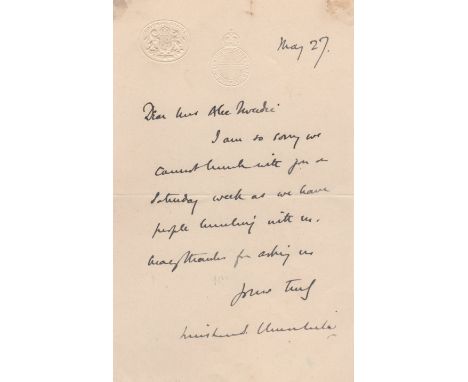 May 27.
Dear Mrs Alec Tweedie
I am so sorry we
cannot lunch with you on
Saturday week as we have
people lunching with us.
Many thanks for asking us
Yours truly